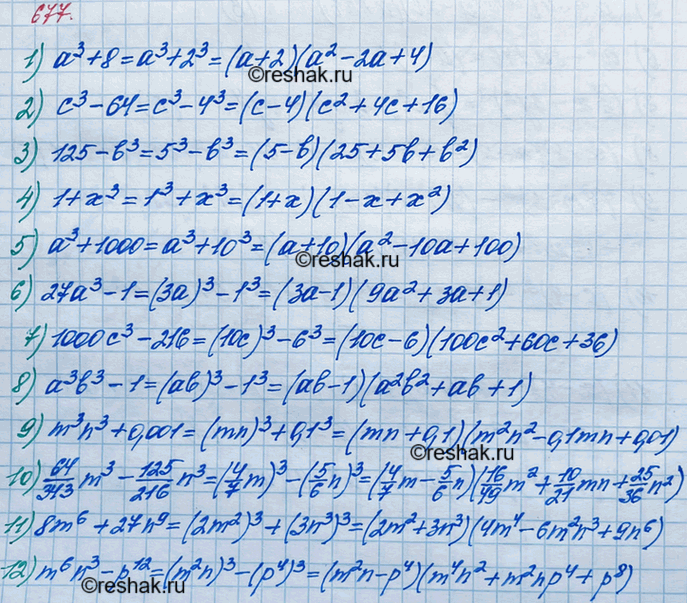 677.
1) a³+8=a³+2³=(a+2)(a²-2a+4)
©reshak.ru
2) c³-64=c³-4³=(c-4)(c²+4c+16)
3) 125-b³=5³-b³=(5-b)(25+5b+b²)
4) 1+x³=1³+x³=(1+x)(1-x+x²)
5) a³+1000=a³+10³=(a+10)(a²-10a+100)
©reshak.ru
6) 27a³-1=(3a)³-1³=(3a-1)(9a²+3a+1)
7) 1000c³-216=(10c)³-6³=(10c-6)(100c²+60c+36)
8) a³b³-1=(ab)³-1³=(ab-1)(a²b²+ab+1)
©reshak.ru
9) m³n³+0,001=(mn)³+0,1³=(mn+0,1)(m²n²-0,1mn+0,01)
10) 64/343 m³-125/216 n³=(4/7 m)³-(5/6 n)³=(4/7 m-5/6 n)(16/49 m²+10/21 mn+25/36 n²)
11) 8m⁶+27n⁹=(2m²)³+(3n³)³=(2m²+3n³)(4m⁴-6m²n³+9n⁶)
12) m⁶n³-p¹²=(m²n)³-(p⁴)³=(m²n-p⁴)(m⁴n²+m²np⁴+p⁸)
©reshak.ru